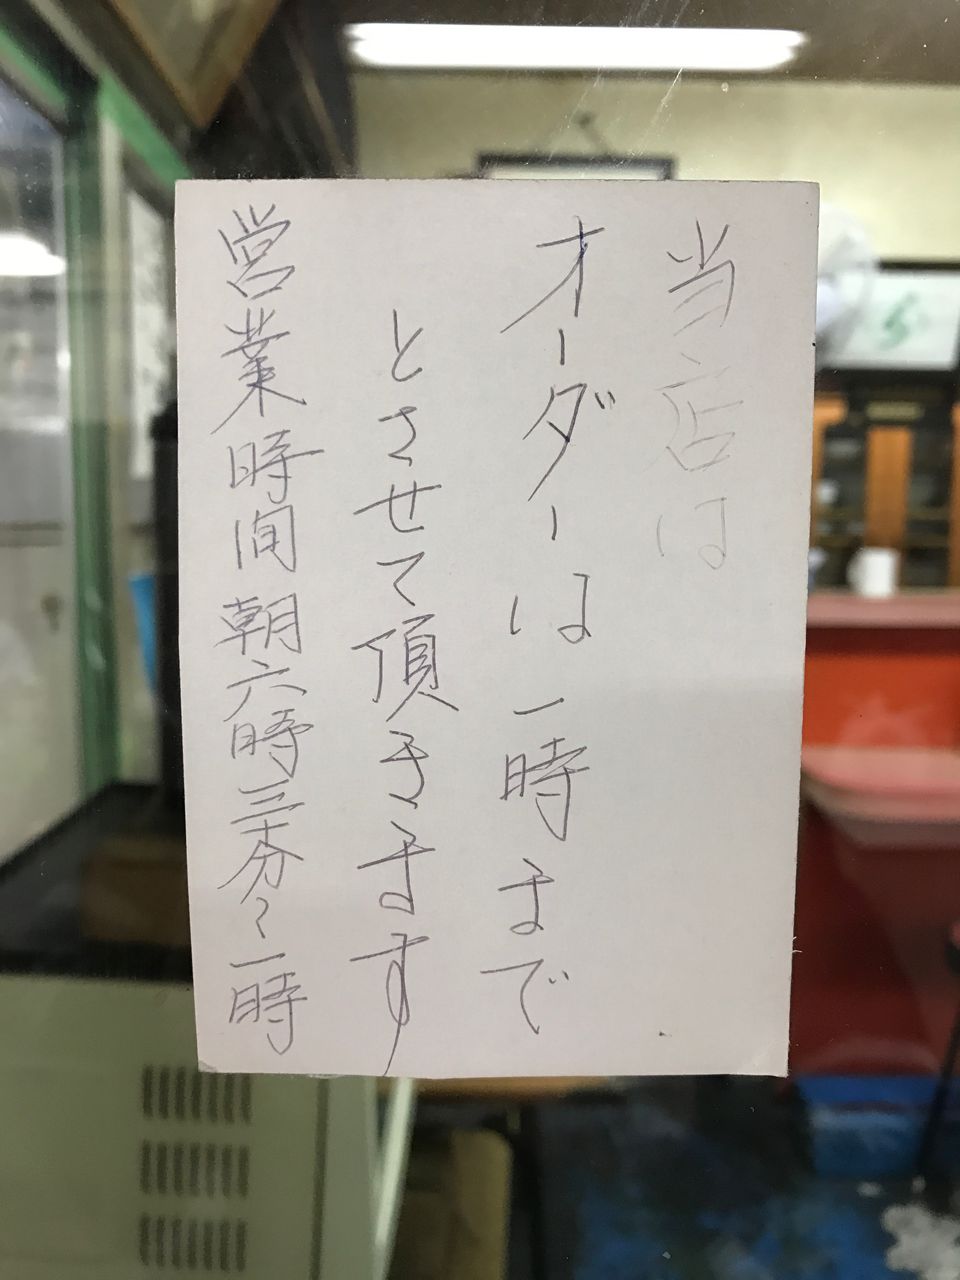 当店は
オーダーは一時まで
とさせて頂きます
営業時間 朝六時三十分〜一時